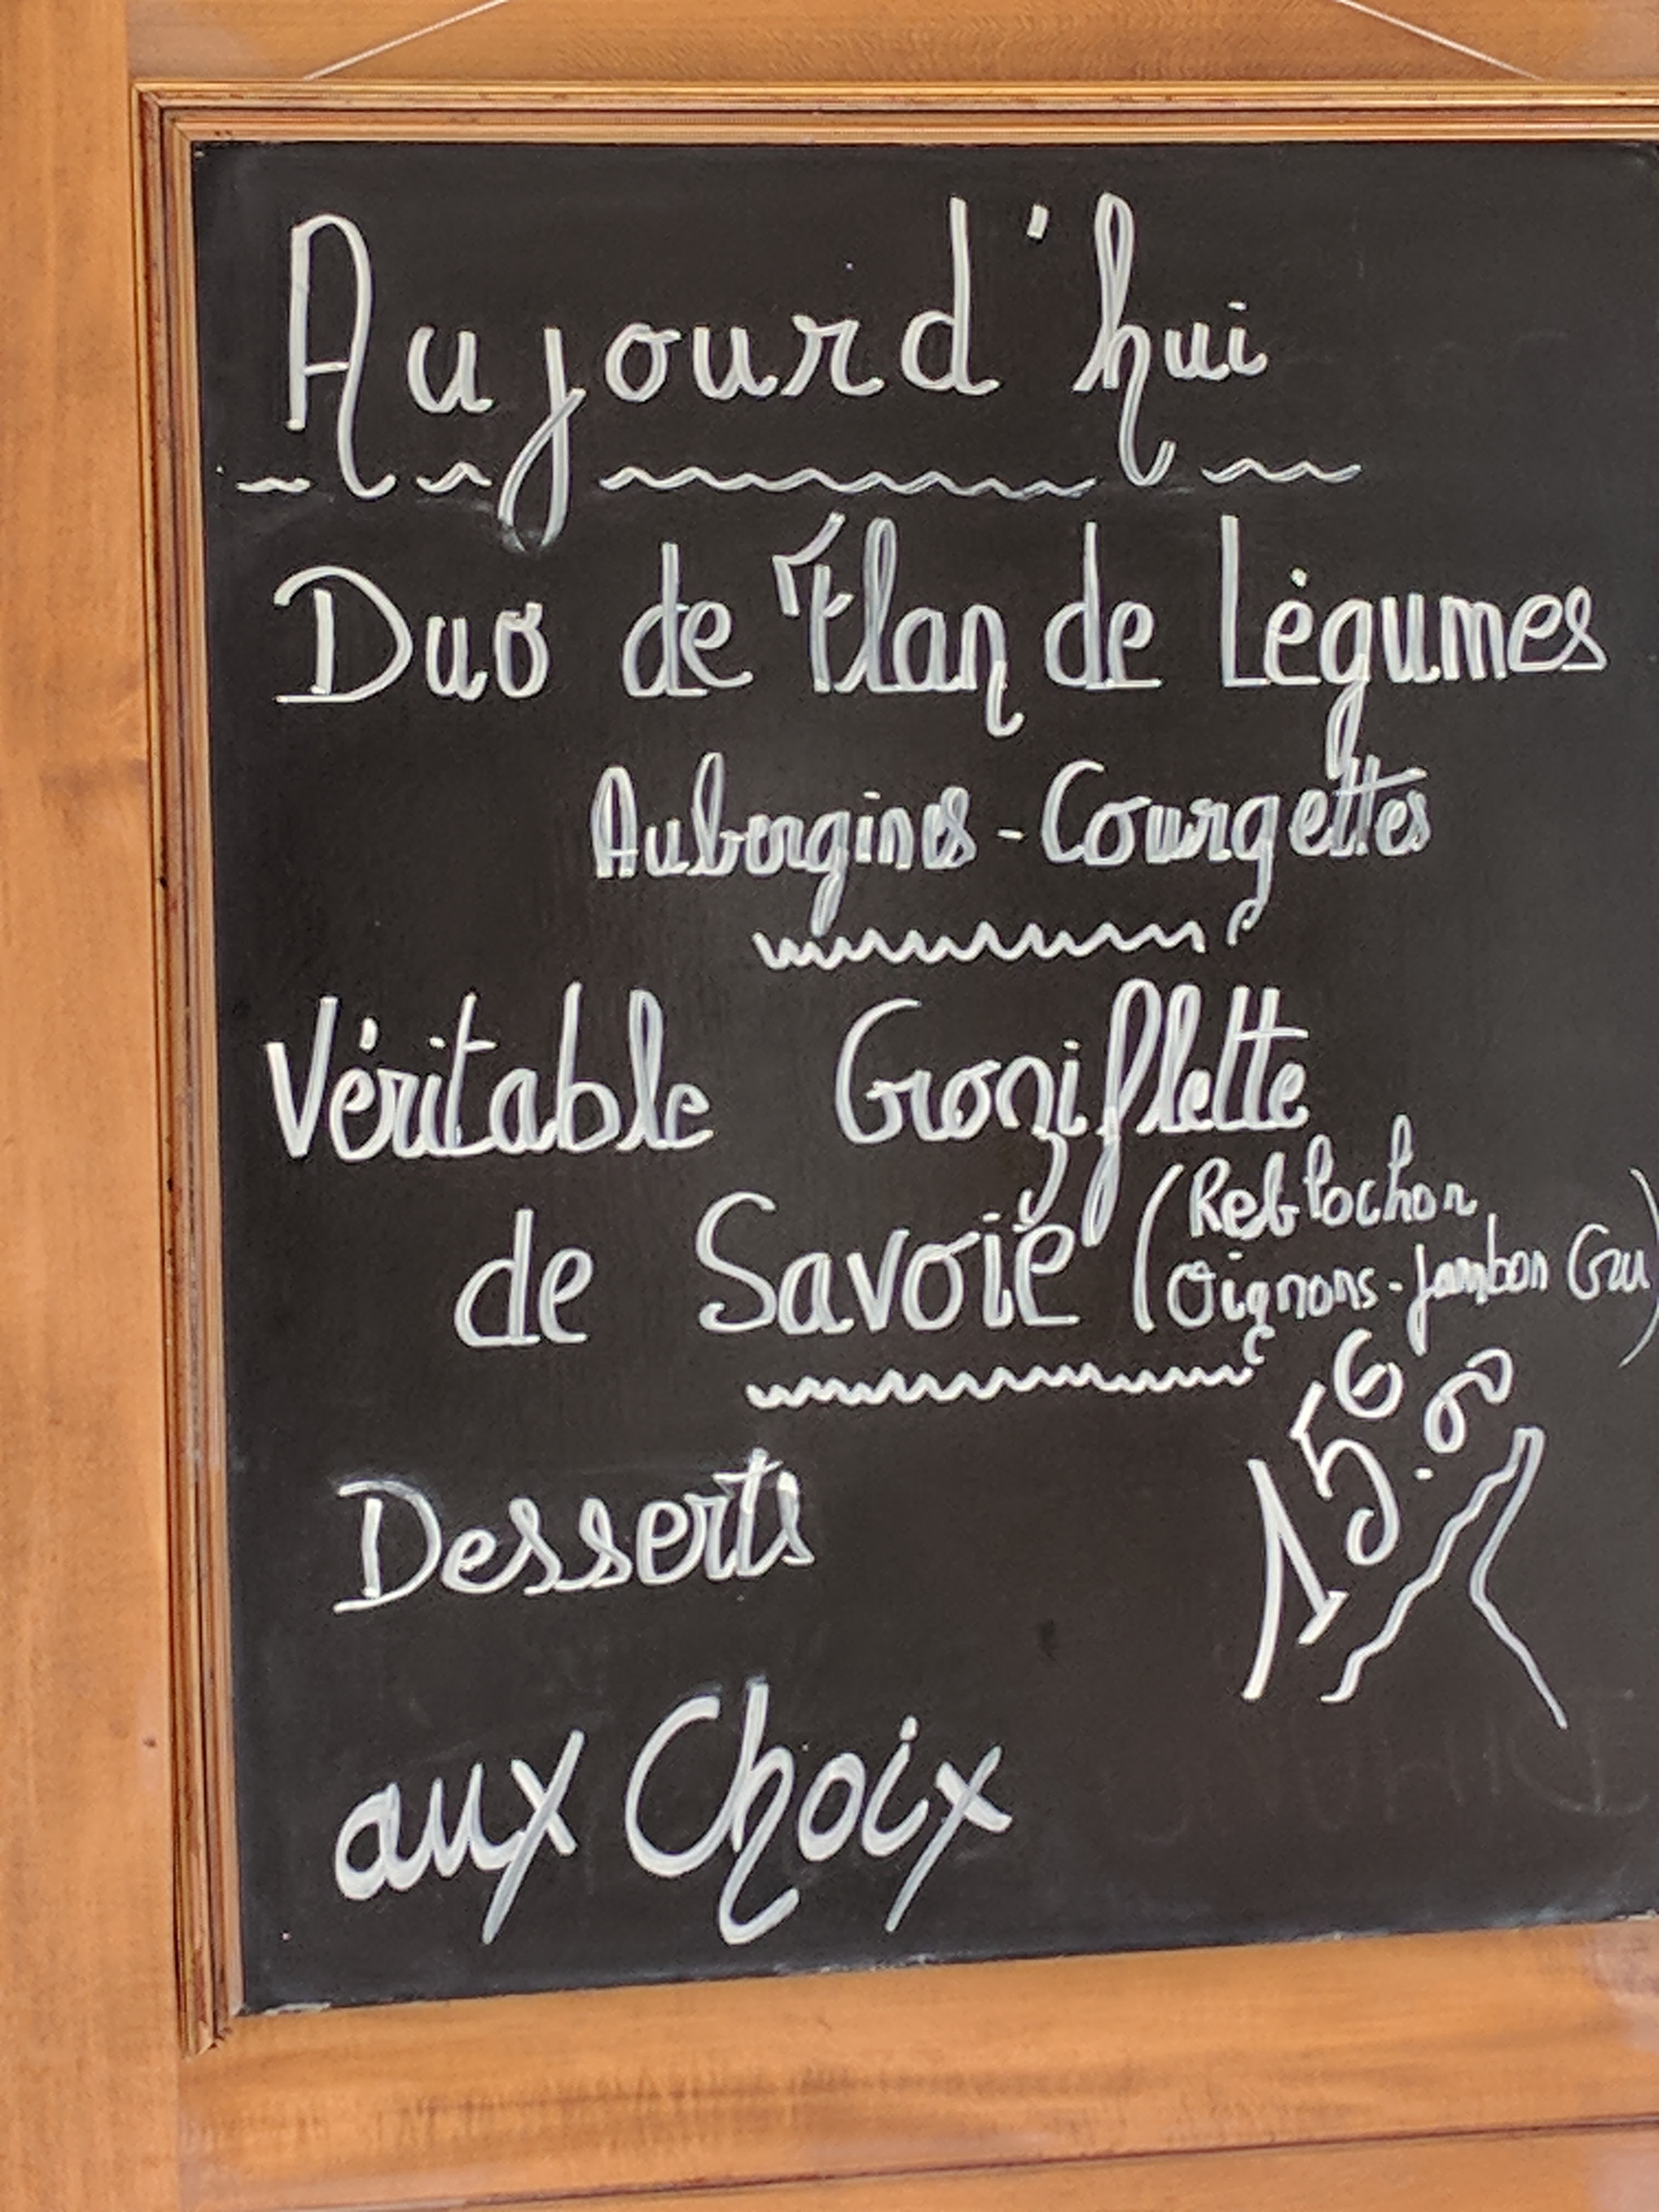 Aujourd'hui
Duo de Flan de Légumes
Aubergines - Courgettes
Véritable Croziflette
de Savoie (Reblochon
Oignons - Jambon Cru)
Desserts
aux Choix